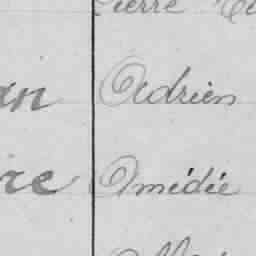 Pierre
an Adrien
re Amédée